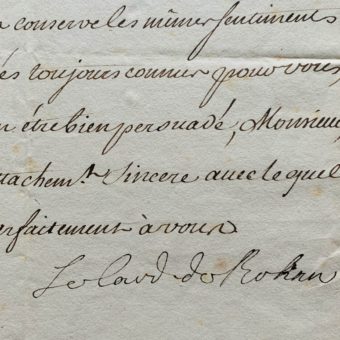 conserve les mêmes sentiments
toujours connus pour vous
être bien persuadé, Monsieur,
tachem.t sincere avec le quel
rfaitement à vous
Le Card. de Rohan